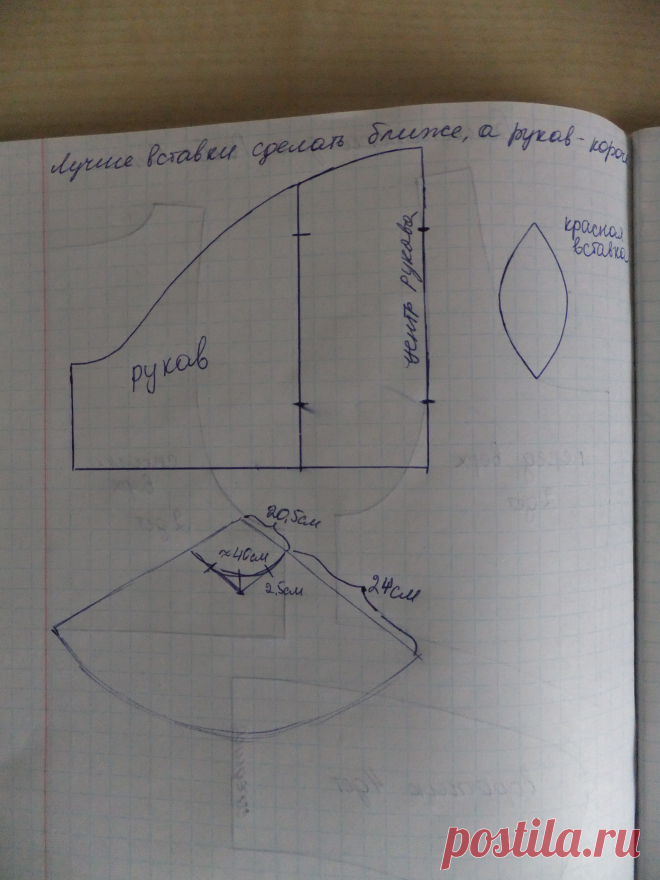 Лучше вставки сделать ближе, а рукав - короч
красная
вставка
центр рукава
рукав
20,5см
≈40см
2,5см
24см
postila.ru